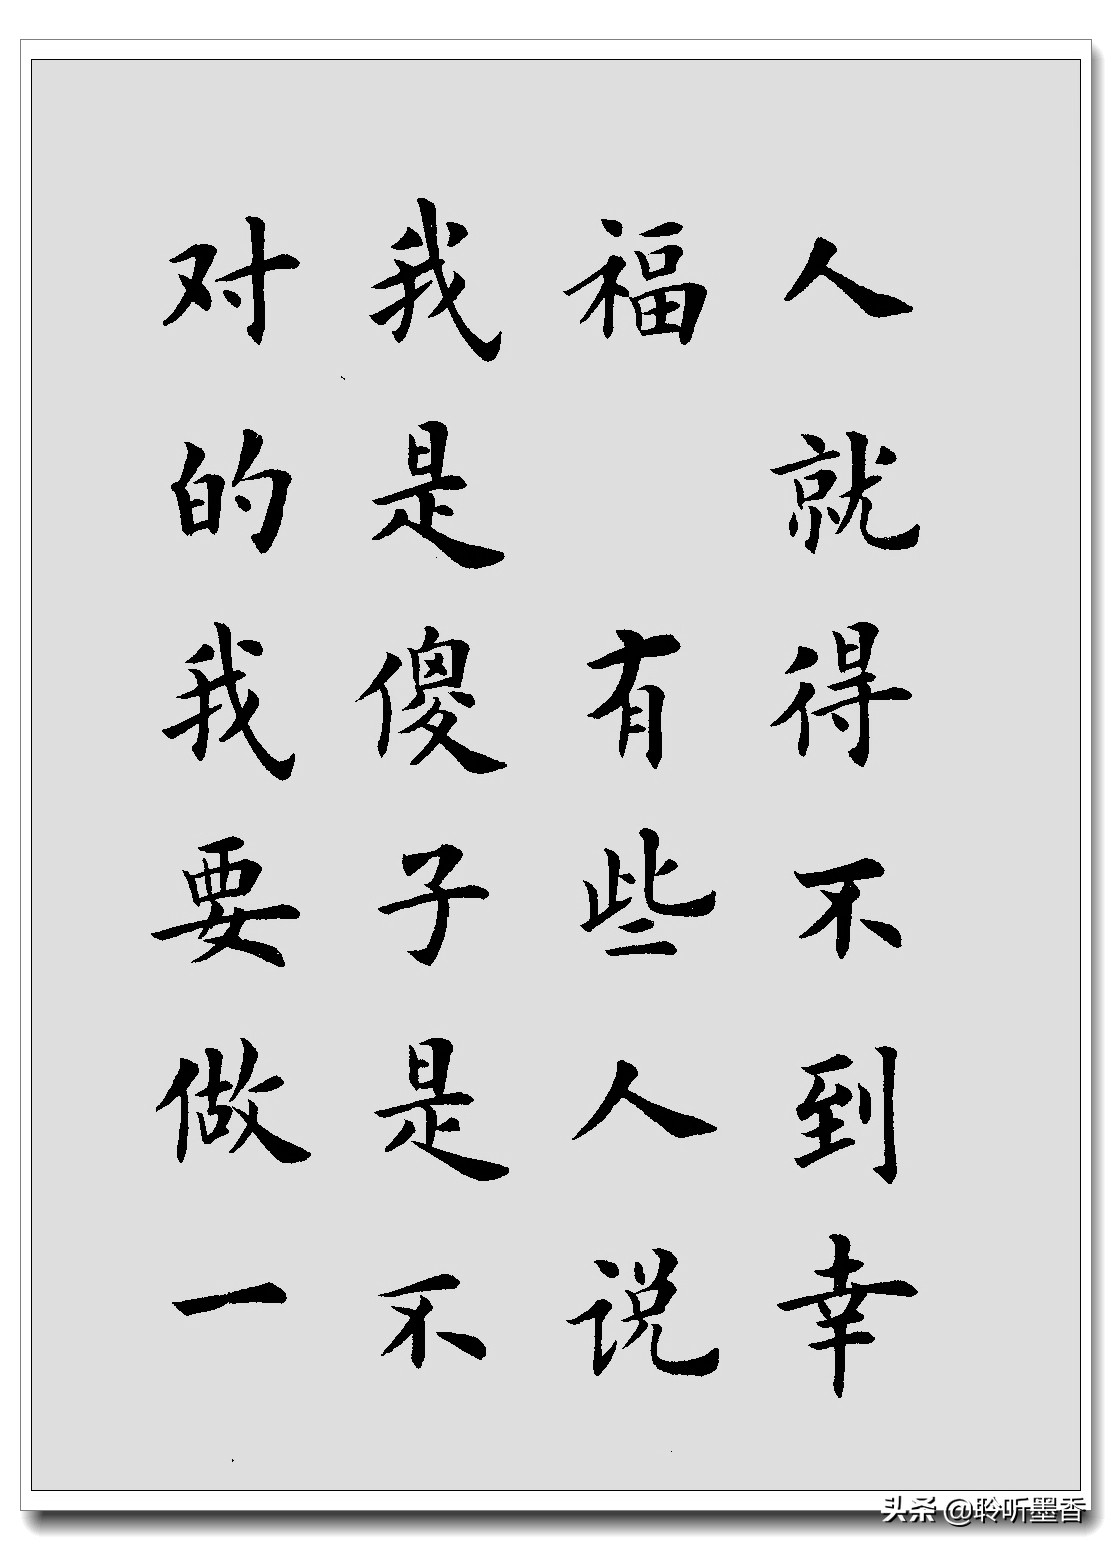 人就得不到幸
福 有些人说
我是傻子是不
对的我要做一
头条 @聆听墨香